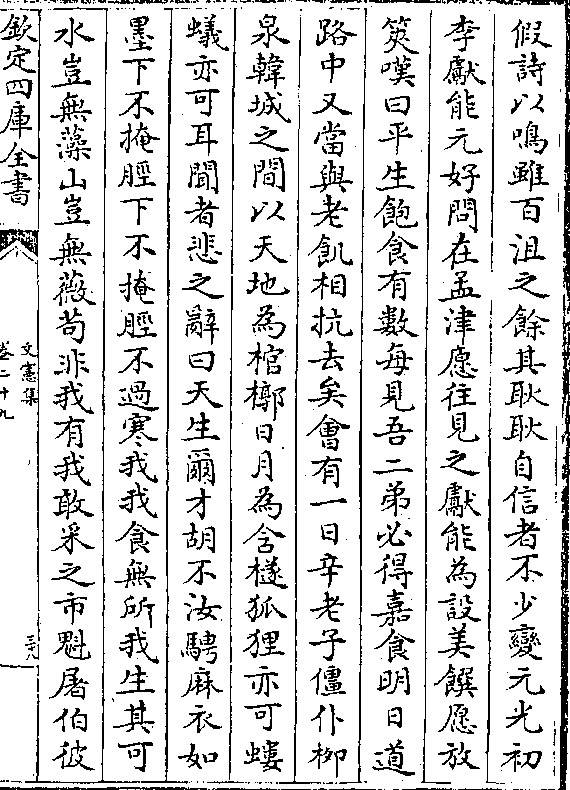 假詩以鳴雖百沮之餘其耿耿自信者不少變元光初
李獻能元好問在孟津愿往見之獻能為設美饌愿放
筴嘆曰平生飽食有數每見吾二弟必得嘉食明日道
路中又當與老飢相抗去矣會有一日辛老子僵仆柳
泉韓城之間以天地為棺槨日月為含襚狐狸亦可螻
蟻亦可耳聞者悲之辭曰天生爾才胡不汝騁麻衣如
墨下不掩脛下不掩脛不過寒我我食無所我生其可
水豈無藻山豈無薇苟非我有我敢采之市魁屠伯彼
欽定四庫全書
文憲集
卷二十九
三十八